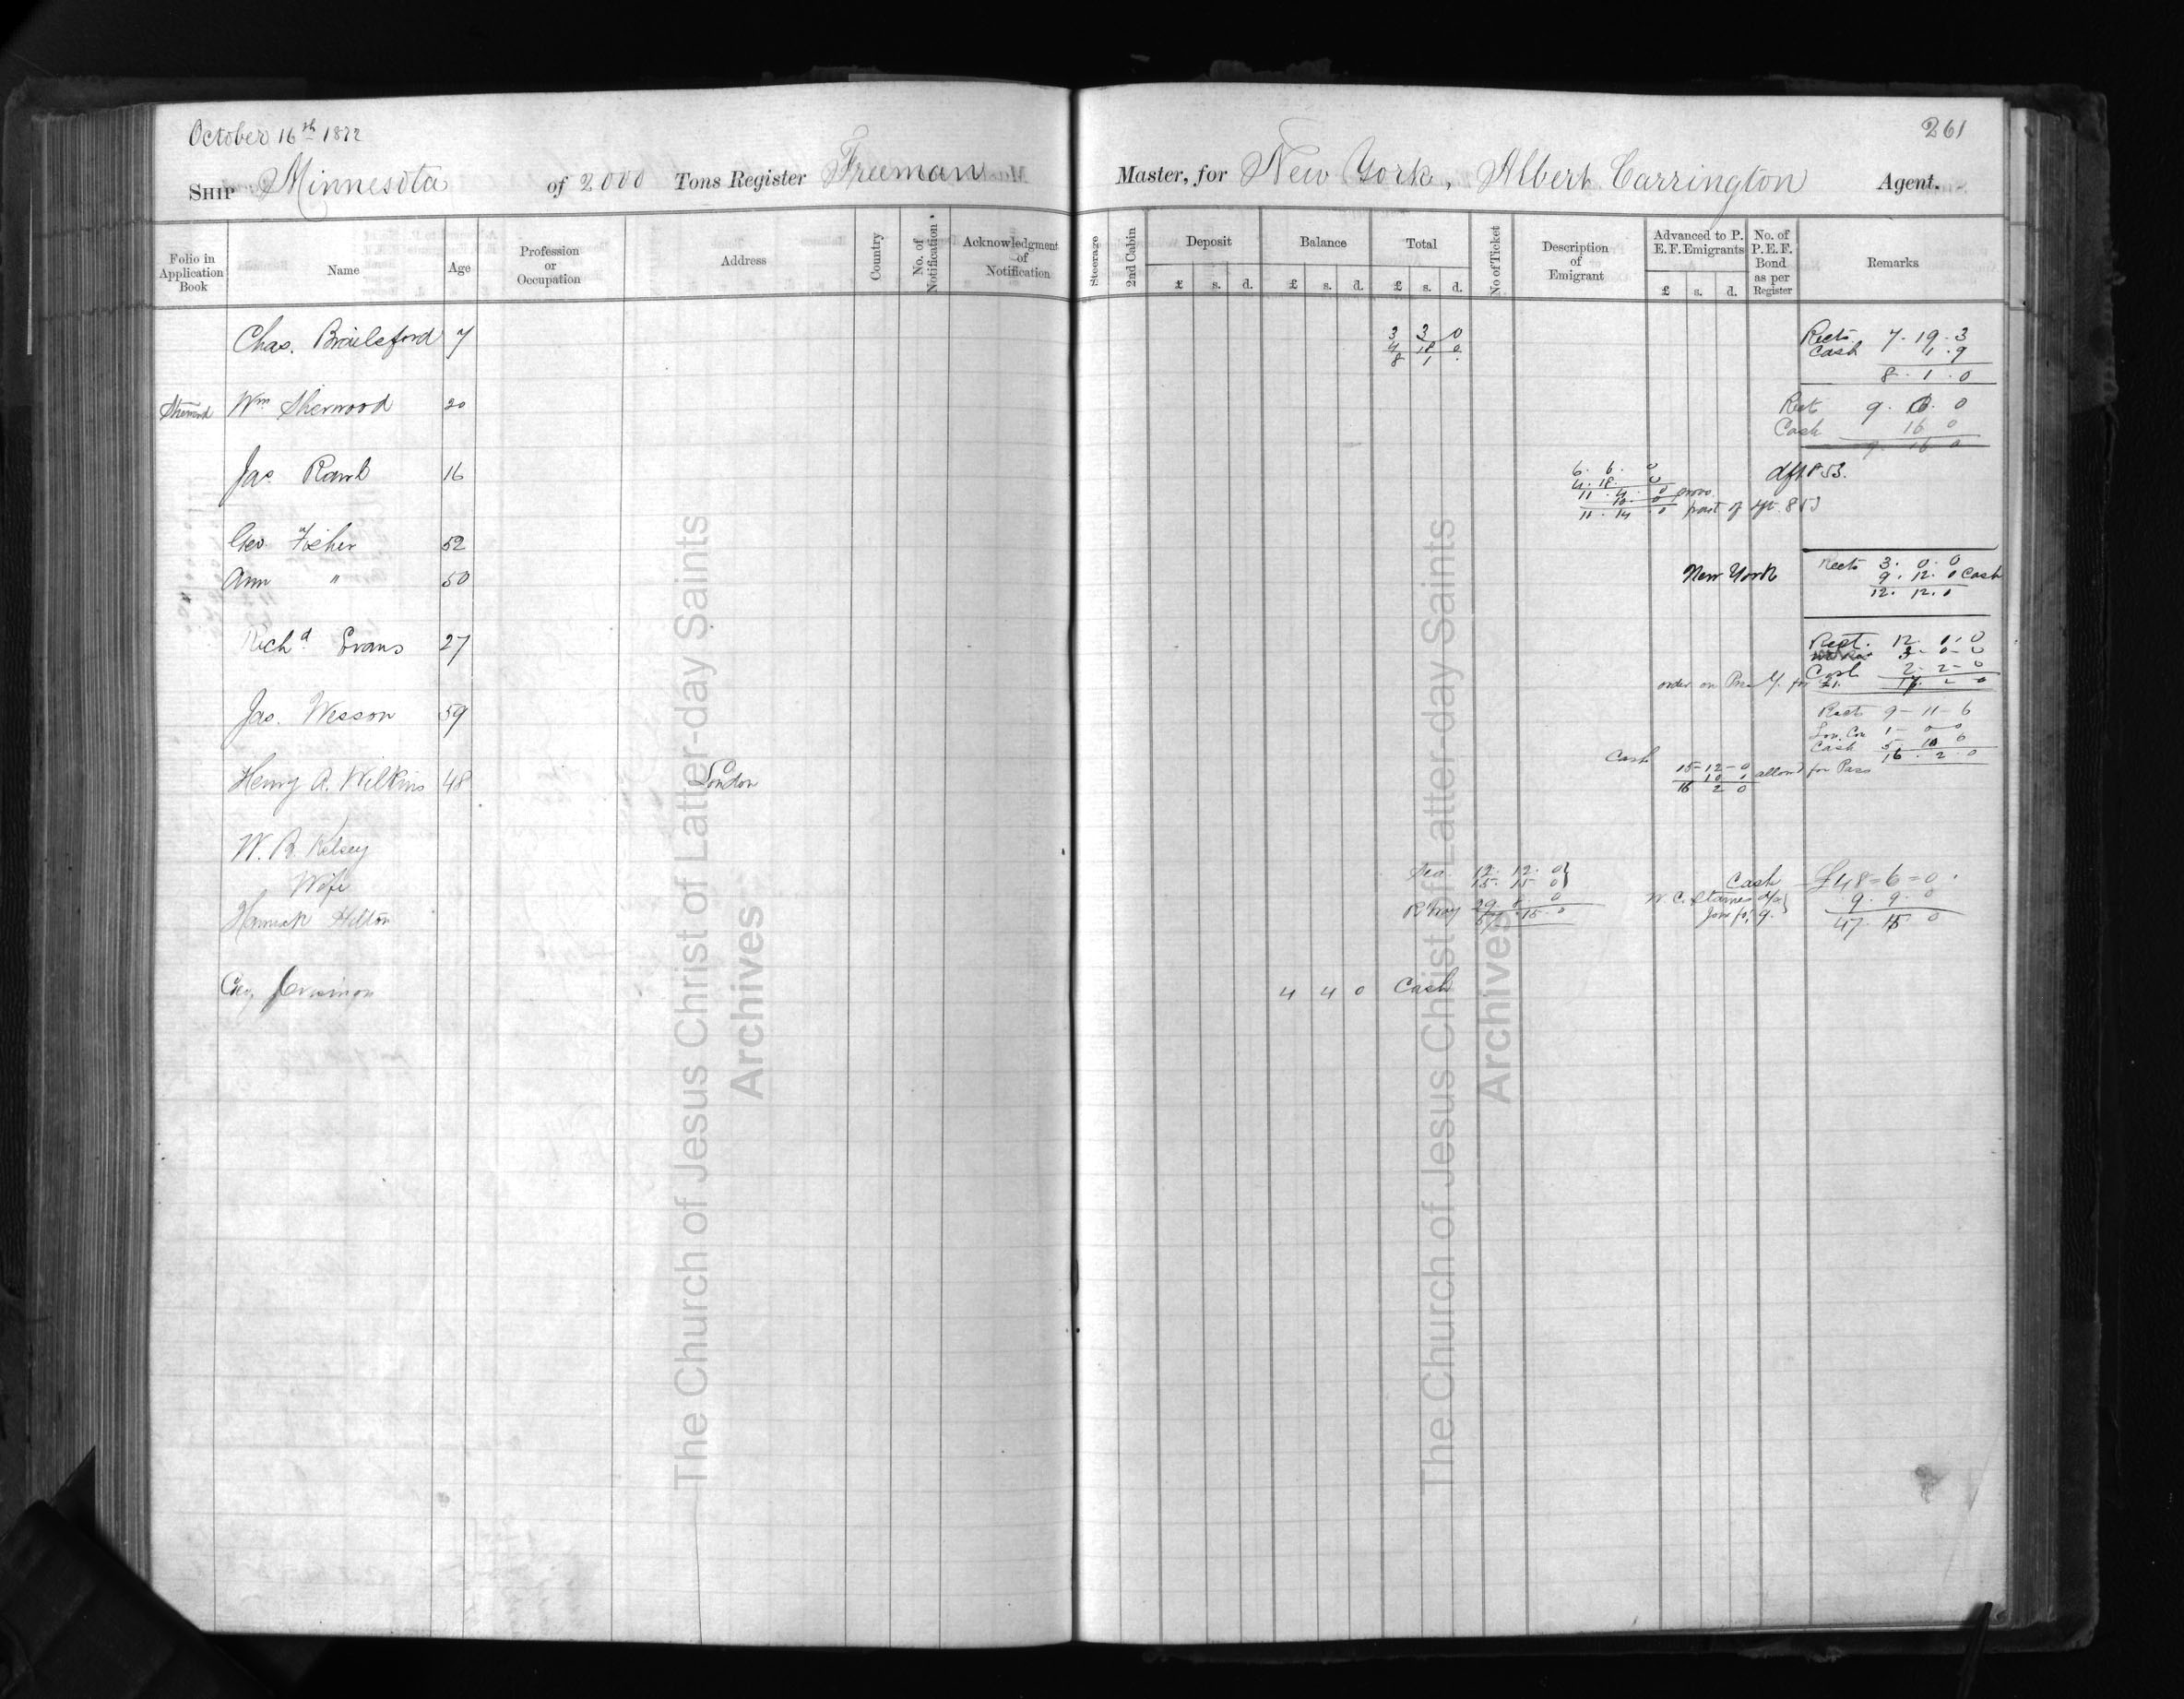 October 16th 1872
261
SHIP Minnesota of 2000 Tons Register Freeman Master, for New York, Albert Carrington Agent.
Folio in Application Book
Name
Age
Profession or Occupation
Address
Country
No. of Notification.
Acknowledgment of Notification
Steerage
2nd Cabin
Deposit
£ s. d.
Balance
£ s. d.
Total
£ s. d.
No of Ticket
Description of Emigrant
Advanced to P. E. F. Emigrants
£ s. d.
No. of P. E. F. Bond as per Register
Remarks
Chas. Brailsford 7 3 3 0 Rects. 7. 19. 3
4 18 0 Cash 1. 9
8 1 . 8. 1. 0
Wm Sherwood 20 Rect 9. 0. 0
Cash 16 0
9 16 0
Jas 16 6. 6. 0 dft 853.
4. 18. 0
11. 4. 0
10. 0
11. 14 0 part of dft. 853
Geo Fisher 52
Ann " 50 New York Rects 3. 0. 0
9. 12. 0 Cash
12. 12. 0
Richd Evans 27 Rect. 12. 0. 0
3. 0. 0
Cash 2. 2. 0
order on for £1. 17. 2 0
Jas. Wesson 59 Rects 9 - 11 - 6
1 - 0 - 0
Cash 5. 10 6
16. 2. 0
Henry A. Wilkins 48 London Cash 15 - 12 - 0
10 0 allowd for Pass
16 2 0
W. R. Kelsey
Wife Sea. 12. 12. 0 Cash £48 = 6 = 0
15. 15 0
Hannah Hilton R'way 29. 8 0 W. C. Staines 9. 9. 0
57. 15 - 0 47. 15 0
Geo. 4 4 0 Cash
The Church of Jesus Christ of Latter-day Saints
Archives
The Church of Jesus Christ of Latter-day Saints
Archives